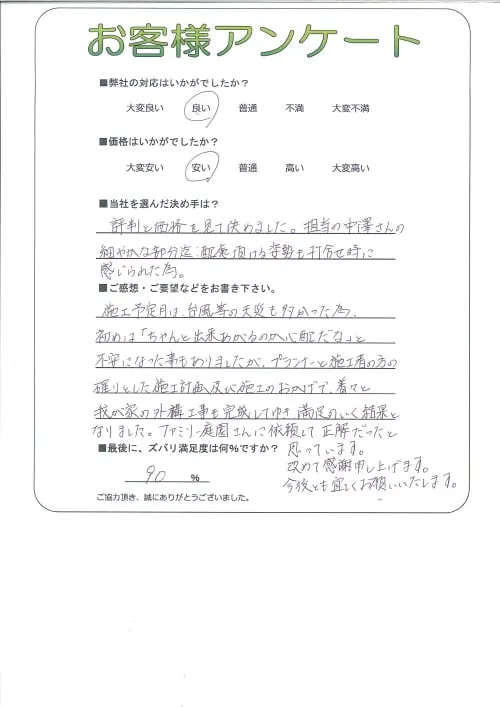 お客様アンケート
■弊社の対応はいかがでしたか？
大変良い 良い 普通 不満 大変不満
■価格はいかがでしたか？
大変安い 安い 普通 高い 大変高い
■当社を選んだ決め手は？
評判と価格を見て決めました。担当の中澤さんの
細やかな部分迄、配慮頂ける姿勢も打合せ時に
感じられた為。
■ご感想・ご要望などをお書き下さい。
施工予定月は、台風等の天災も多かった為、
初めは「ちゃんと出来あがるのか心配だな」と
不安になった事もありましたが、プランナーと施工者の方の
確りとした施工計画及び施工のおかげで、着々と
我が家の外構工事も完成してゆき、満足のいく結果と
なりました。ファミリー庭園さんに依頼して正解だったと
思っています。
改めて感謝申し上げます。
今後とも宜しくお願いいたします。
■最後に、ズバリ満足度は何%ですか？
90 %
ご協力頂き、誠にありがとうございました。